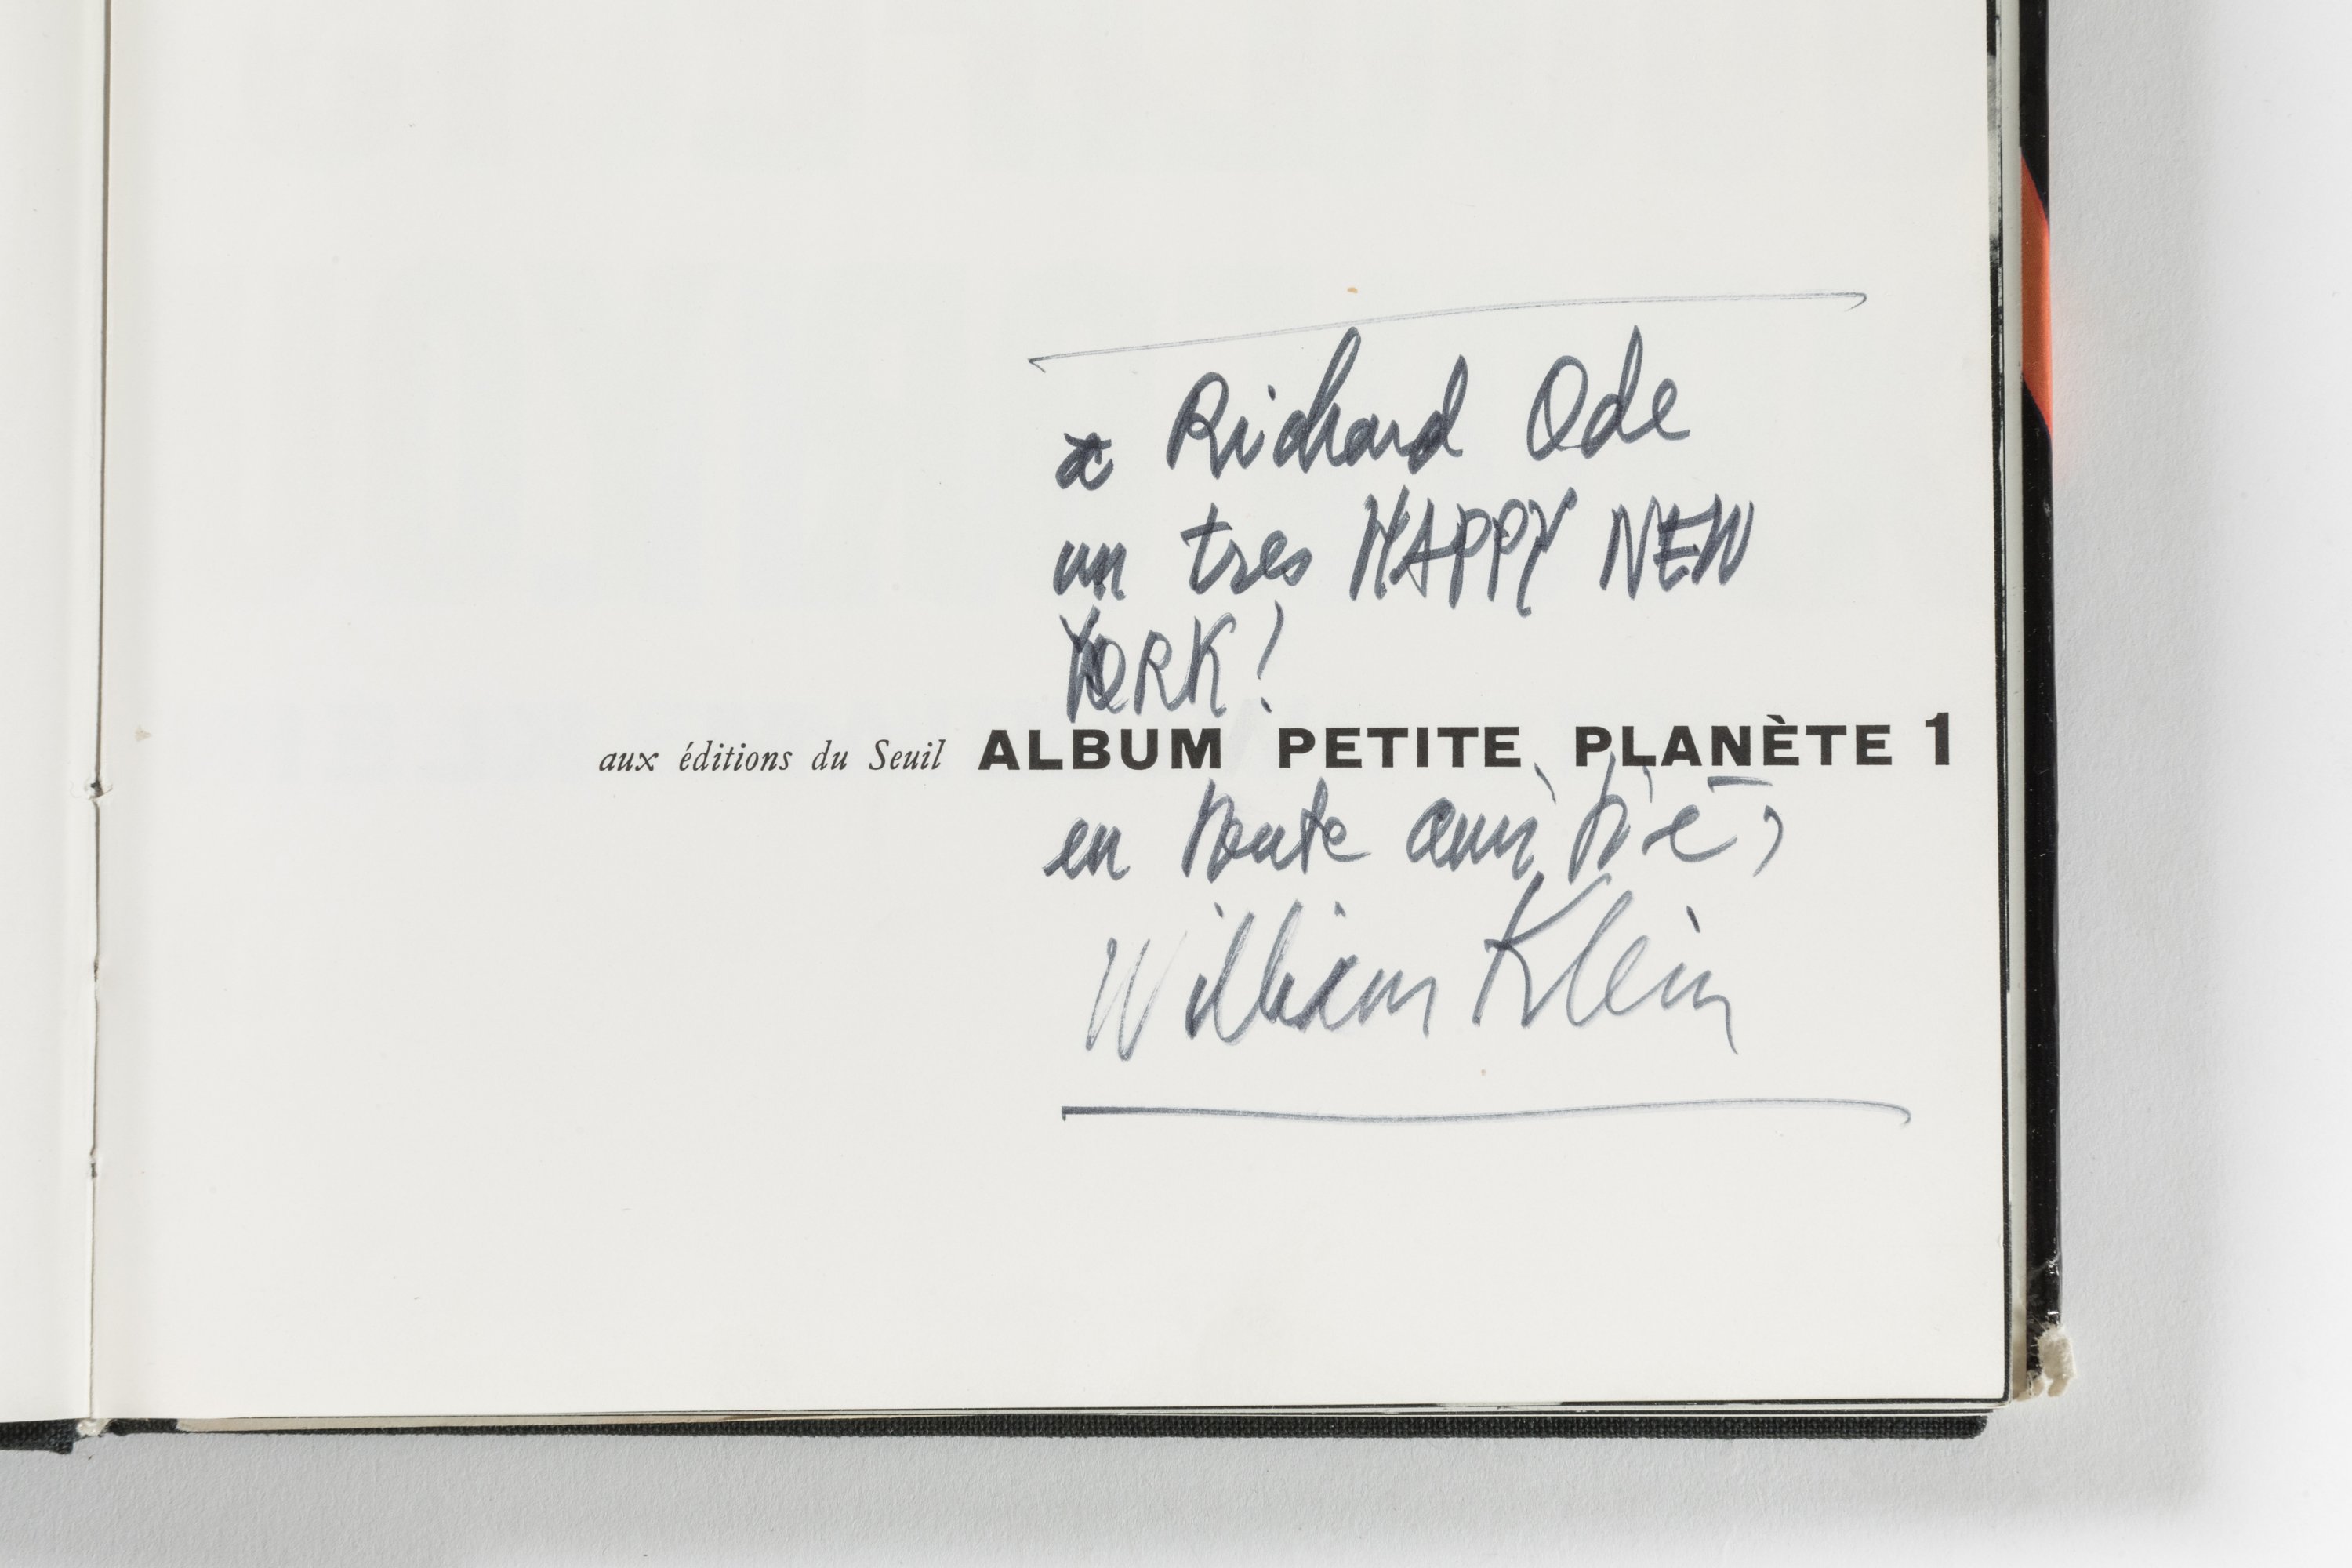 à Richard Ode
un tres HAPPY NEW
YORK!
aux éditions du Seuil ALBUM PETITE PLANÈTE 1
en toute amitié,
William Klein